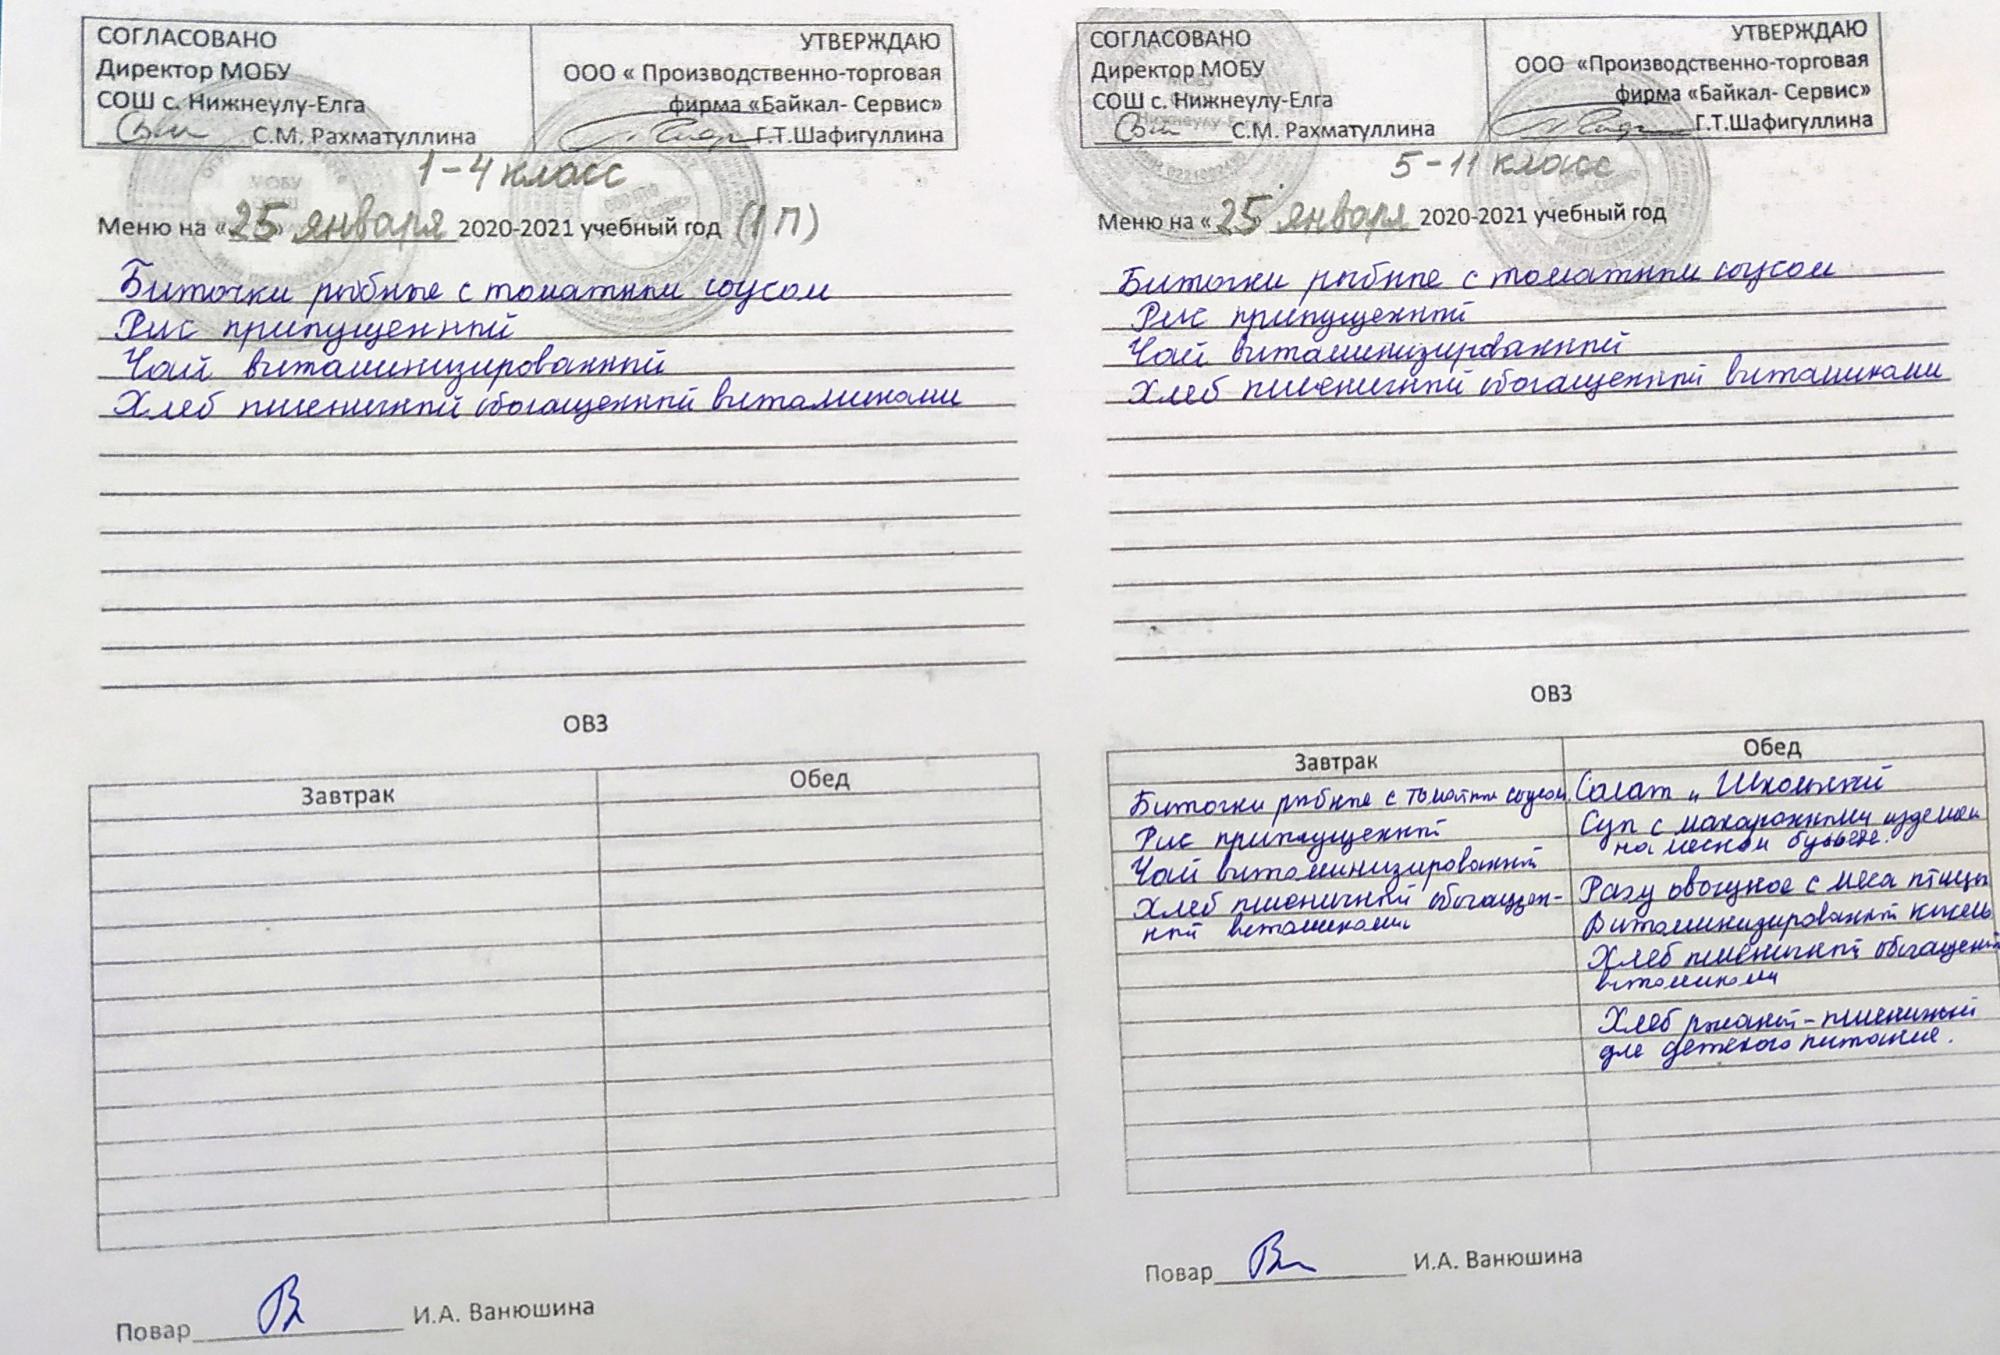 СОГЛАСОВАНО
Директор МОБУ
СОШ с. Нижнеулу-Елга
С.М. Рахматуллина
УТВЕРЖДАЮ
ООО « Производственно-торговая
фирма «Байкал- Сервис»
Г.Т.Шафигуллина
1-4 класс
Меню на «25» января 2020-2021 учебный год (1 П)
Биточки рыбные с томатным соусом
Рис припущенный
Чай витаминизированный
Хлеб пшеничный обогащенный витаминами
ОВЗ
Завтрак Обед
Повар И.А. Ванюшина
СОГЛАСОВАНО
Директор МОБУ
СОШ с. Нижнеулу-Елга
С.М. Рахматуллина
УТВЕРЖДАЮ
ООО «Производственно-торговая
фирма «Байкал- Сервис»
Г.Т.Шафигуллина
5-11 класс
Меню на «25» января 2020-2021 учебный год
Биточки рыбные с томатным соусом
Рис припущенный
Чай витаминизированный
Хлеб пшеничный обогащенный витаминами
ОВЗ
Завтрак
Биточки рыбные с томатным соусом
Рис припущенный
Чай витаминизированный
Хлеб пшеничный обогащен-
ный витаминами
Обед
Салат „ Школьный
Суп с макаронными изделиями
на мясном бульоне.
Рагу овощное с мяса птицы
Витаминизированный кисель
Хлеб пшеничный обогащенный
витаминами
Хлеб ржаной-пшеничный
для детского питания.
Повар И.А. Ванюшина